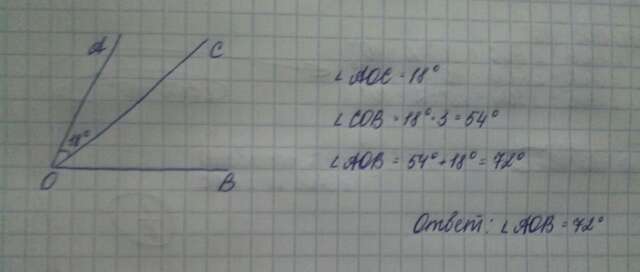 A
C
18°
O
B
∠AOC = 18°
∠COB = 18° · 3 = 54°
∠AOB = 54° + 18° = 72°
Ответ: ∠AOB = 72°